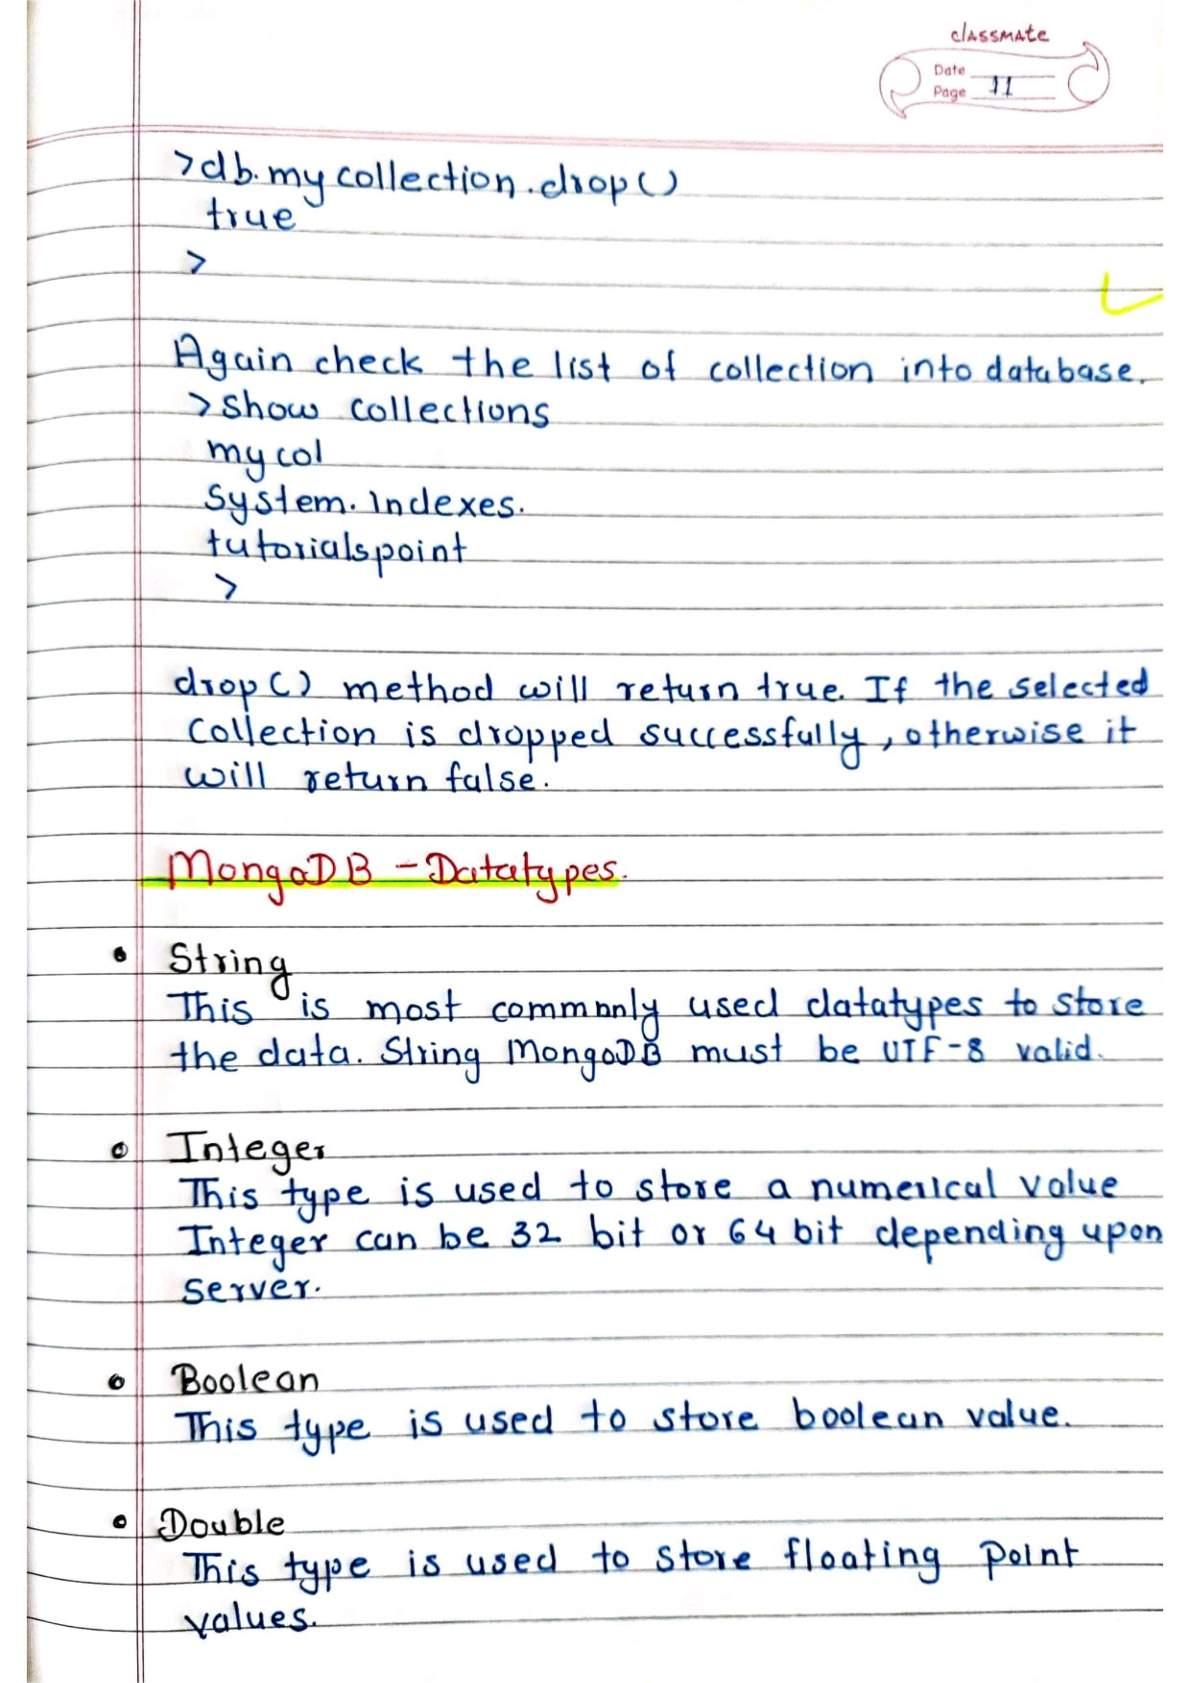 classmate
Date
Page 11
>db.mycollection.drop()
true
>
Again check the list of collection into database.
>show collections
mycol
System.indexes.
tutorialspoint
>
drop() method will return true. If the selected
collection is dropped successfully, otherwise it
will return false.
MongoDB - Datatypes.
• String
This is most commnnly used datatypes to store
the data. String MongoDB must be UTF-8 valid.
• Integer
This type is used to store a numerical value
Integer can be 32 bit or 64 bit depending upon
server.
• Boolean
This type is used to store boolean value.
• Double
This type is used to store floating point
values.